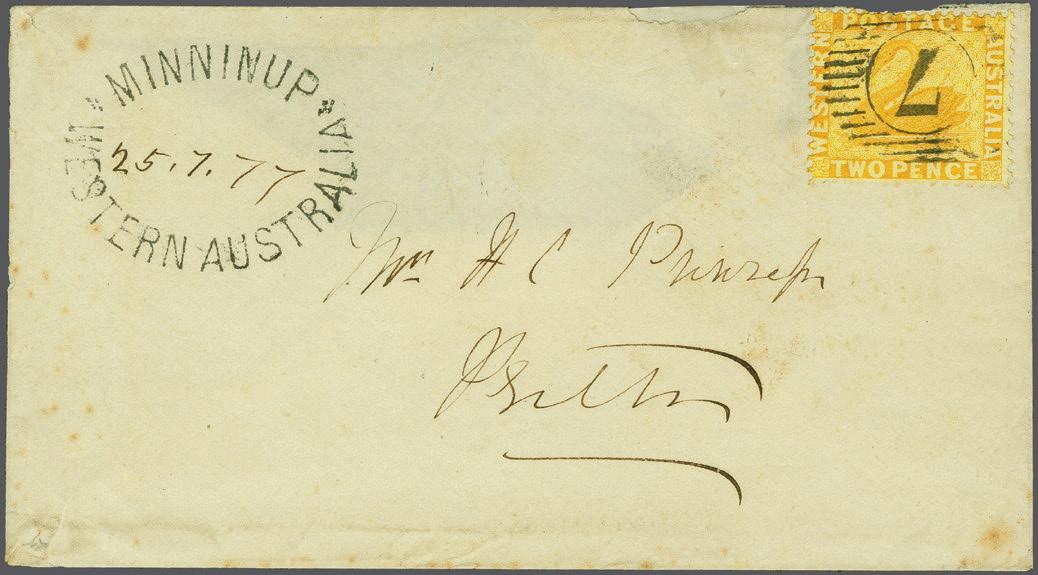 MINNINUP
WESTERN AUSTRALIA
25.7.77
POSTAGE
WESTERN
AUSTRALIA
TWO PENCE
7
H C Prinsep